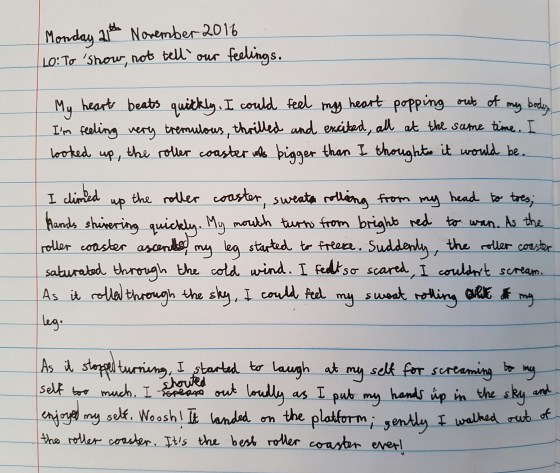 Monday 21th November 2016
LO: To 'show, not tell' our feelings.
My heart beats quickly. I could feel my heart popping out of my body,
I'm feeling very tremulous, thrilled and excited, all at the same time. I
looked up, the roller coaster was bigger than I thought it would be.
I climbed up the roller coaster, sweat rolling from my head to toes;
hands shivering quickly. My mouth turns from bright red to wan. As the
roller coaster ascended, my leg started to freeze. Suddenly, the roller coaster
saturated through the cold wind. I felt so scared, I couldn't scream.
As it rolled through the sky, I could feel my sweat rolling my
leg.
As it stopped turning, I started to laugh at my self for screaming to my
self too much. I shouted out loudly as I put my hands up in the sky and
enjoyed my self. Woosh! It landed on the platform; gently I walked out of
the roller coaster. It's the best roller coaster ever!